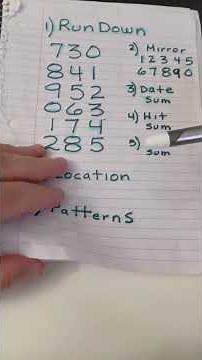 1) Run Down
730
841
952
063
174
285
2) Mirror
1 2 3 4 5
6 7 8 9 0
3) Date
Sum
4) Hit
Sum
5)
Sum
Location
Patterns